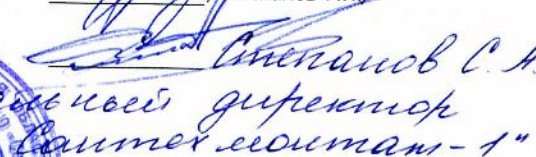 Степанов С. А.
льный директор
Сантехмонтаж-1"